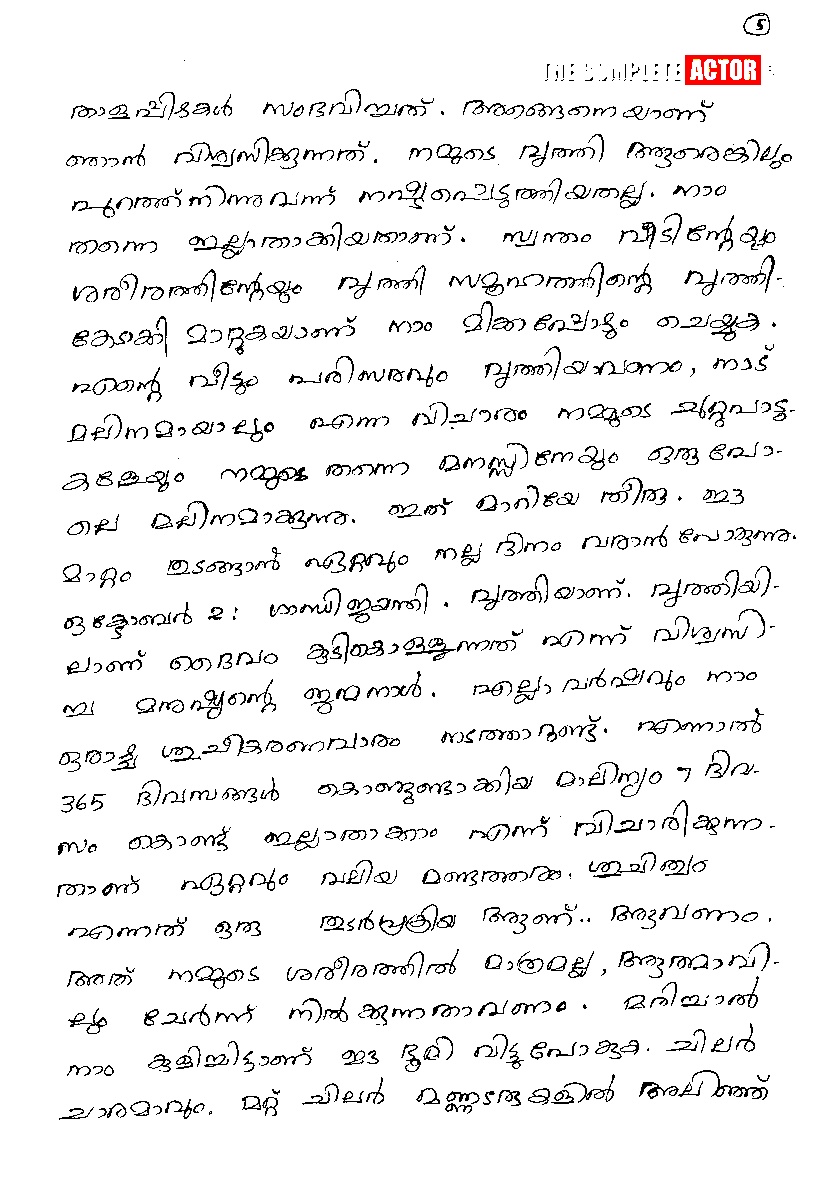 5
THE COMPLETE ACTOR
താളപ്പിഴകൾ സംഭവിച്ചത്. അങ്ങനെയാണ്
ഞാൻ വിശ്വസിക്കുന്നത്. നമ്മുടെ വൃത്തി ആരെങ്കിലും
പുറത്ത് നിന്നുവന്ന് നഷ്ടപ്പെടുത്തിയതല്ല. നാം
തന്നെ ഇല്ലാതാക്കിയതാണ്. സ്വന്തം വീടിന്റേയും
ശരീരത്തിന്റേയും വൃത്തി സമൂഹത്തിന്റെ വൃത്തി-
കേടാക്കി മാറ്റുകയാണ് നാം മിക്കപ്പോഴും ചെയ്യുക.
എന്റെ വീടും പരിസരവും വൃത്തിയാവണം, നാട്
മലിനമായാലും എന്ന വിചാരം നമ്മുടെ ചുറ്റുപാടു-
കളേയും നമ്മുടെ തന്നെ മനസ്സിനേയും ഒരുപോ-
ലെ മലിനമാക്കുന്നു. ഇത് മാറിയേ തീരു. ഈ
മാറ്റം തുടങ്ങാൻ ഏറ്റവും നല്ല ദിനം വരാൻ പോകുന്നു.
ഒക്ടോബർ 2: ഗാന്ധിജയന്തി. വൃത്തിയാണ്. വൃത്തിയി-
ലാണ് ദൈവം കുടികൊള്ളുന്നത് എന്ന് വിശ്വസി-
ച്ച മനുഷ്യന്റെ ജന്മനാൾ. എല്ലാ വർഷവും നാം
ഒരാഴ്ച ശുചീകരണവാരം നടത്താറുണ്ട്. എന്നാൽ
365 ദിവസങ്ങൾ കൊണ്ടുണ്ടാക്കിയ മാലിന്യം 7 ദിവ-
സം കൊണ്ട് ഇല്ലാതാക്കാം എന്ന് വിചാരിക്കുന്ന-
താണ് ഏറ്റവും വലിയ മണ്ടത്തരം. ശുചിത്വം
എന്നത് ഒരു തുടർപ്രക്രിയ ആണ്.. ആവണം.
അത് നമ്മുടെ ശരീരത്തിൽ മാത്രമല്ല, ആത്മാവി-
ലും ചേർന്ന് നിൽക്കുന്നതാവണം. മരിച്ചാൽ
നാം കുളിച്ചിട്ടാണ് ഈ ഭൂമി വിട്ടുപോകുക. ചിലർ
ചാരമാവും. മറ്റ് ചിലർ മണ്ണടരുകളിൽ അലിഞ്ഞ്